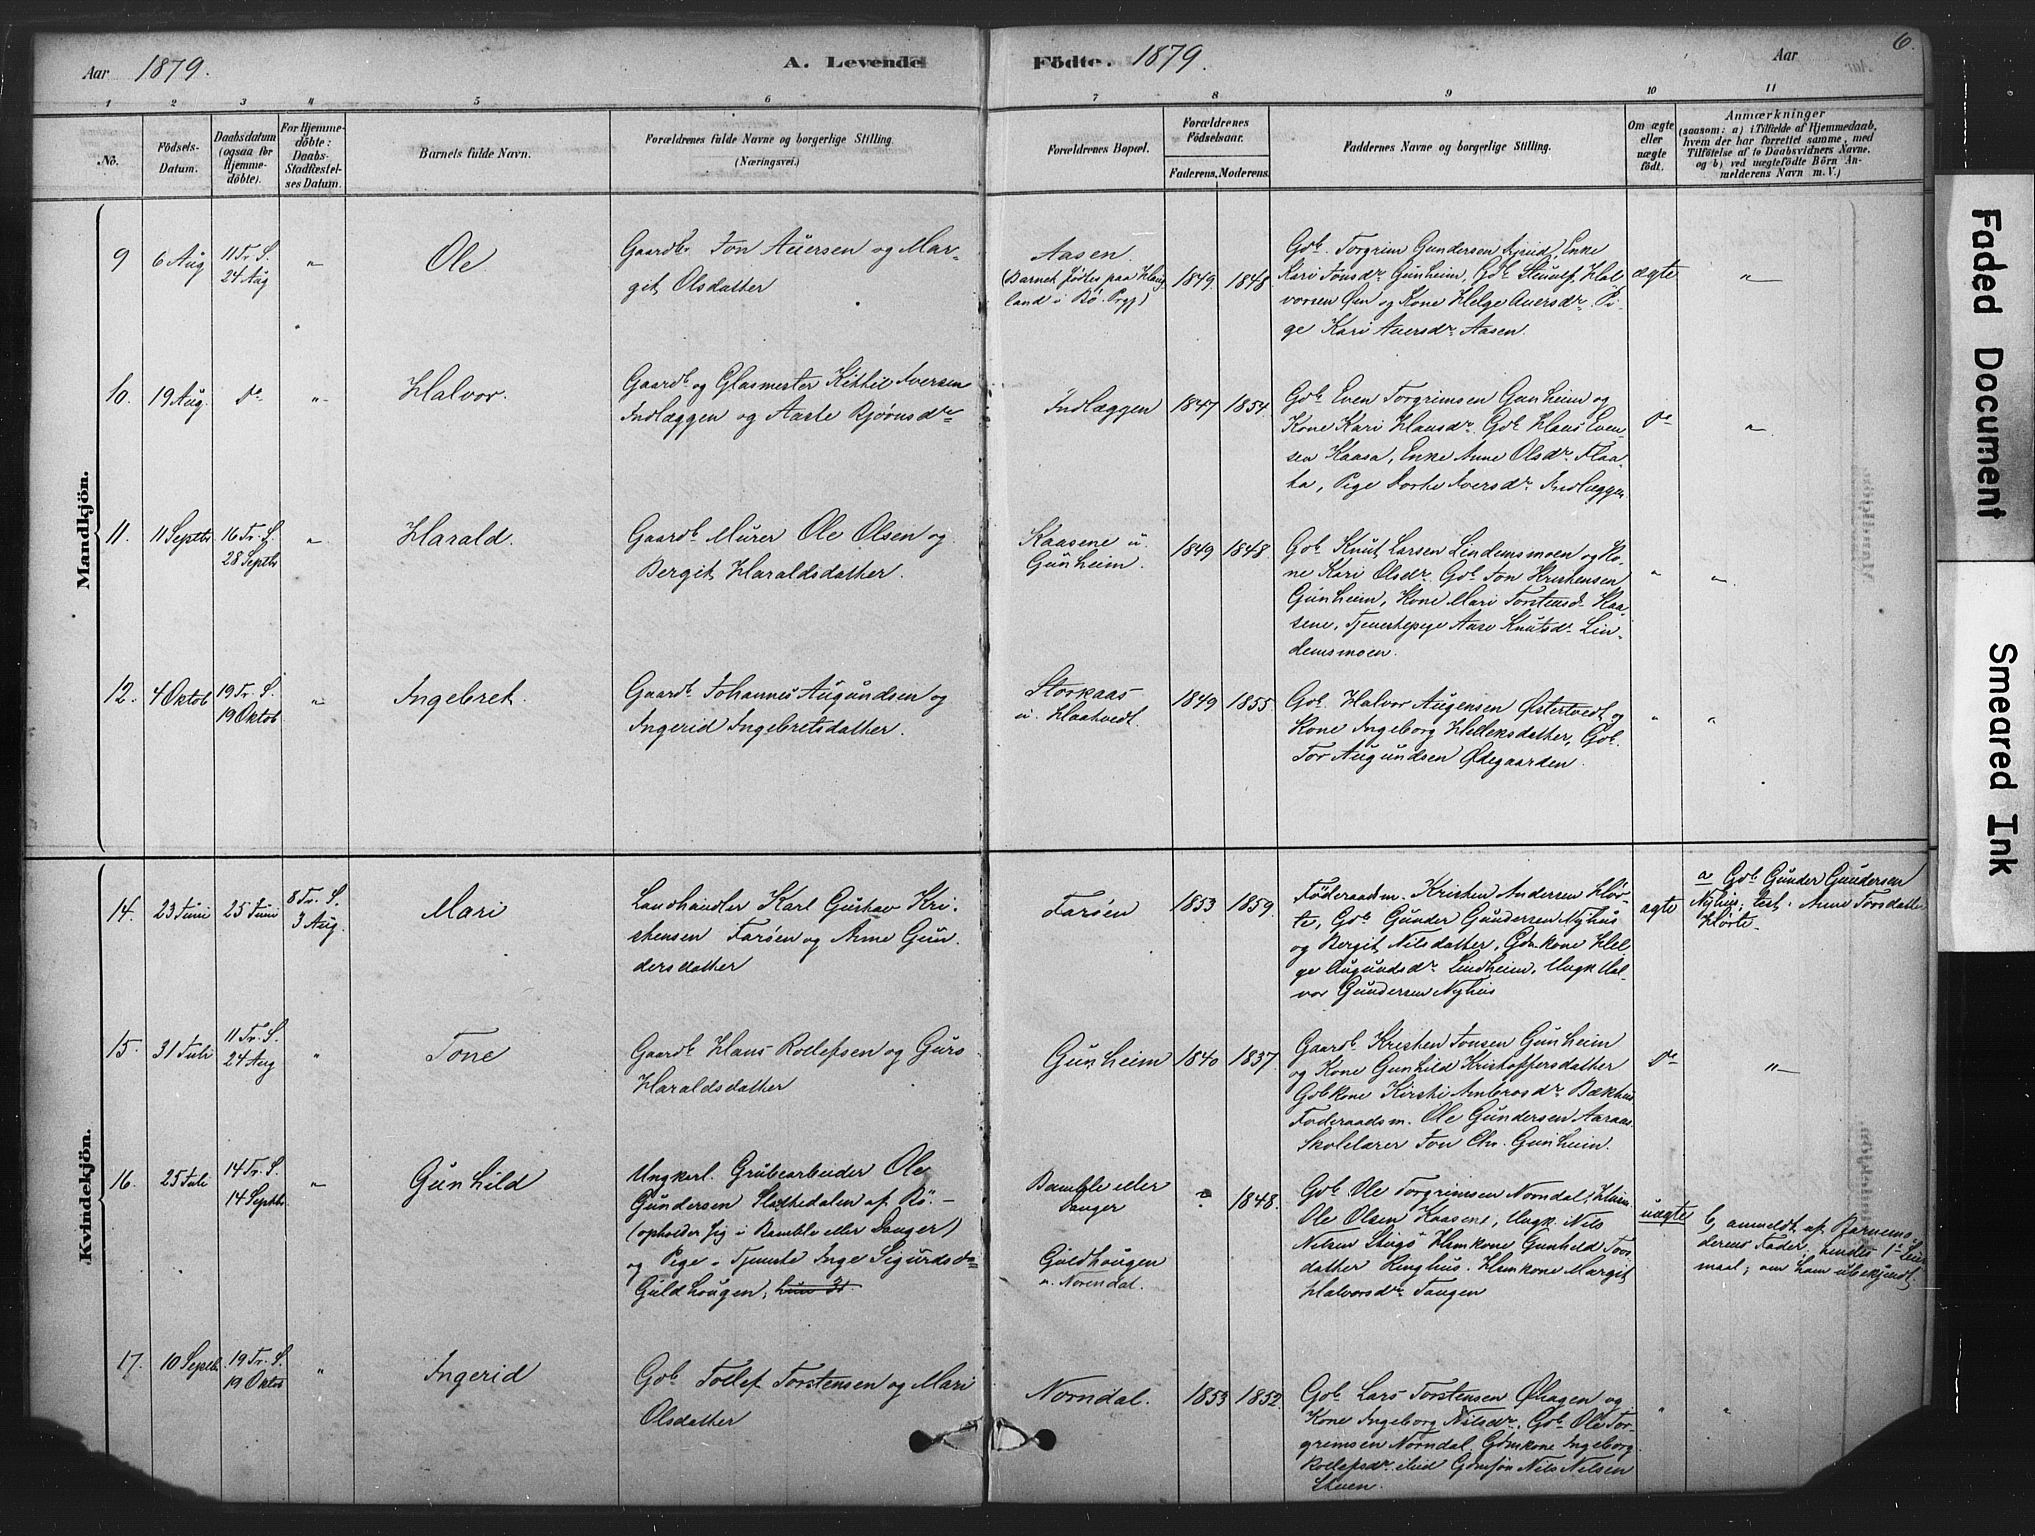 Aar 1879.
A. Levende
Födte. 1879.
Aar
6.
1
2
3
4
5
6
7
8
9
10
11
No.
Födsels-
Datum.
Daabsdatum
(ogsaa for
Hjemme-
döbte).
For Hjemme-
döbte:
Daabs-
Stadfestel-
ses Datum.
Barnets fulde Navn.
Forældrenes fulde Navne og borgerlige Stilling.
(Næringsvei.)
Forældrenes Bopæl.
Forældrenes
Födselsaar.
Faderens.
Moderens.
Faddernes Navne og borgerlige Stilling.
Om ægte
eller
uægte
födt.
Anmærkninger
(saasom: a) i Tilfælde af Hjemmedaab,
hvem der har forrettet samme, med
Tilföielse af to Daabsvidners Navne,
og b) ved uægtefödte Börn An-
melderens Navn m. V.)
Mandkjön.
9
6 Aug
11 Tr. S.
24 Aug
"
Ole.
Gaardbr Jon Auersen og Mar-
git Olsdatter
Aasen.
(Barnet födte paa Haug
land i Bö Prgj)
1849.
1848
Gdb Torgrim Gundersen, Enke
Kari Jonsdr Gunheim, Gdb Hal-
vorsen Øen og Kone Helge Auersdr Pi-
ge Kari Auersdr Aasen.
ægte
"
10.
19 Aug.
do
"
Halvor.
Gaardb og Glasmester Kittil Iversen
Indlæggen og Aaste Bjørnsdr
Indlæggen
1847
1854.
Gdb Even Torgrimsen Gunheim og
Kone Kari Hansdr. Gdb Hans Even-
sen Kaasa, Enke Anne Olsdr Flaa-
ta, Pige Dorte Iversdr Indlæggen
do
"
11.
11 Septb
16 Tr. S.
28 Septb
"
Harald.
Gaardb Murer Ole Olsen og
Bergit Haraldsdatter.
Kaasene u.
Gunheim.
1849
1848.
Gdb Knut Larsen Lindemsmoen og Ko-
ne Kari Olsdr Gdb Jon Kristensen
Gunheim, Kone Mari Torstensd Kaa-
sene, Tjenestepige Aase Knutsdr Lin-
demsmoen.
"
"
12.
4 Oktob
19 Tr. S.
19 Oktob
"
Ingebret.
Gaardb Johannes Augundsen og
Ingerid Ingebretsdatter.
Storkaas
u. Haatvedt.
1849
1855.
Gdb Halvor Augensen Østertvedt og
Kone Ingeborg Helleksdatter, Gdb.
Tor Augundsen Ødegaarden.
"
"
Kvindekjön.
14.
23 Juni
25 Juni
8 Tr. S.
3 Aug.
Mari
Landhandler Karl Gustav Kri-
stensen Farøen og Anne Gun-
dersdatter
Farøen
1853
1859.
Föderaadm. Kristen Andersen Hör-
te, Gdb Gunder Gundersen Nyhus
og Bergit Nilsdatter, Gdmkone Hel-
ge Augundsdr Lindheim, Ungk Hal-
vor Gundersen Nyhus
ægte
a Gdb Gunder Gundersen
Nyhus, test. Anne Torsdatter
Hörte.
15.
31 Juli
11 Tr. S.
24 Aug
"
Tone
Gaardb Hans Rollefsen og Guro
Haraldsdatter
Gunheim
1840
1837.
Gaardb Kristen Jonsen Gunheim
og Kone Gunhild Kristoffersdatter
Gdbkone Kirsti Ambrosdr Bækhus
Föderaadsm. Ole Gundersen Aaraas.
Skolelærer Jon Chr. Gunheim.
do
"
16.
25 Juli
14 Tr. S.
14 Septb
"
Gunhild
Ungkarl. Grubearbeider Ole
Gundersen Slaattedalen af Bö. -
(opholder sig i Bamble eller Sauger)
og Pige - Tjeneste Inge Sigurdsdr
Guldhougen,
Bamble eller
Sauger
Guldhougen
u. Norendal.
?
1848.
Gdb Ole Torgrimsen Norndal, Husm.
Ole Olsen Kaasene, Ungk. Nils
Nilsen Stigs Hsmkone Gunhild Tors-
datter Ringhus. Hsmkone Margit
Halvorsdr Taugen
uægte
b, anmeldt af Barnemo-
derens Fader, hendes 1ste Leier-
maal; om ham ubekjendt.
17.
10 Septb.
19 Tr. S.
19 Oktob
"
Ingerid
Gdb Tollef Torstensen og Mari
Olsdatter
Norndal.
1853
1852.
Gdb Lars Torstensen Øhagen og
Kone Ingeborg Nilsdr. Gdb Ole Tor-
grimsen Norndal. Gdmkone Ingeborg
Rollefsdr ibid Gdmsøn Nils Nilsen
Stuen.
"
"
Faded Document
Smeared Ink